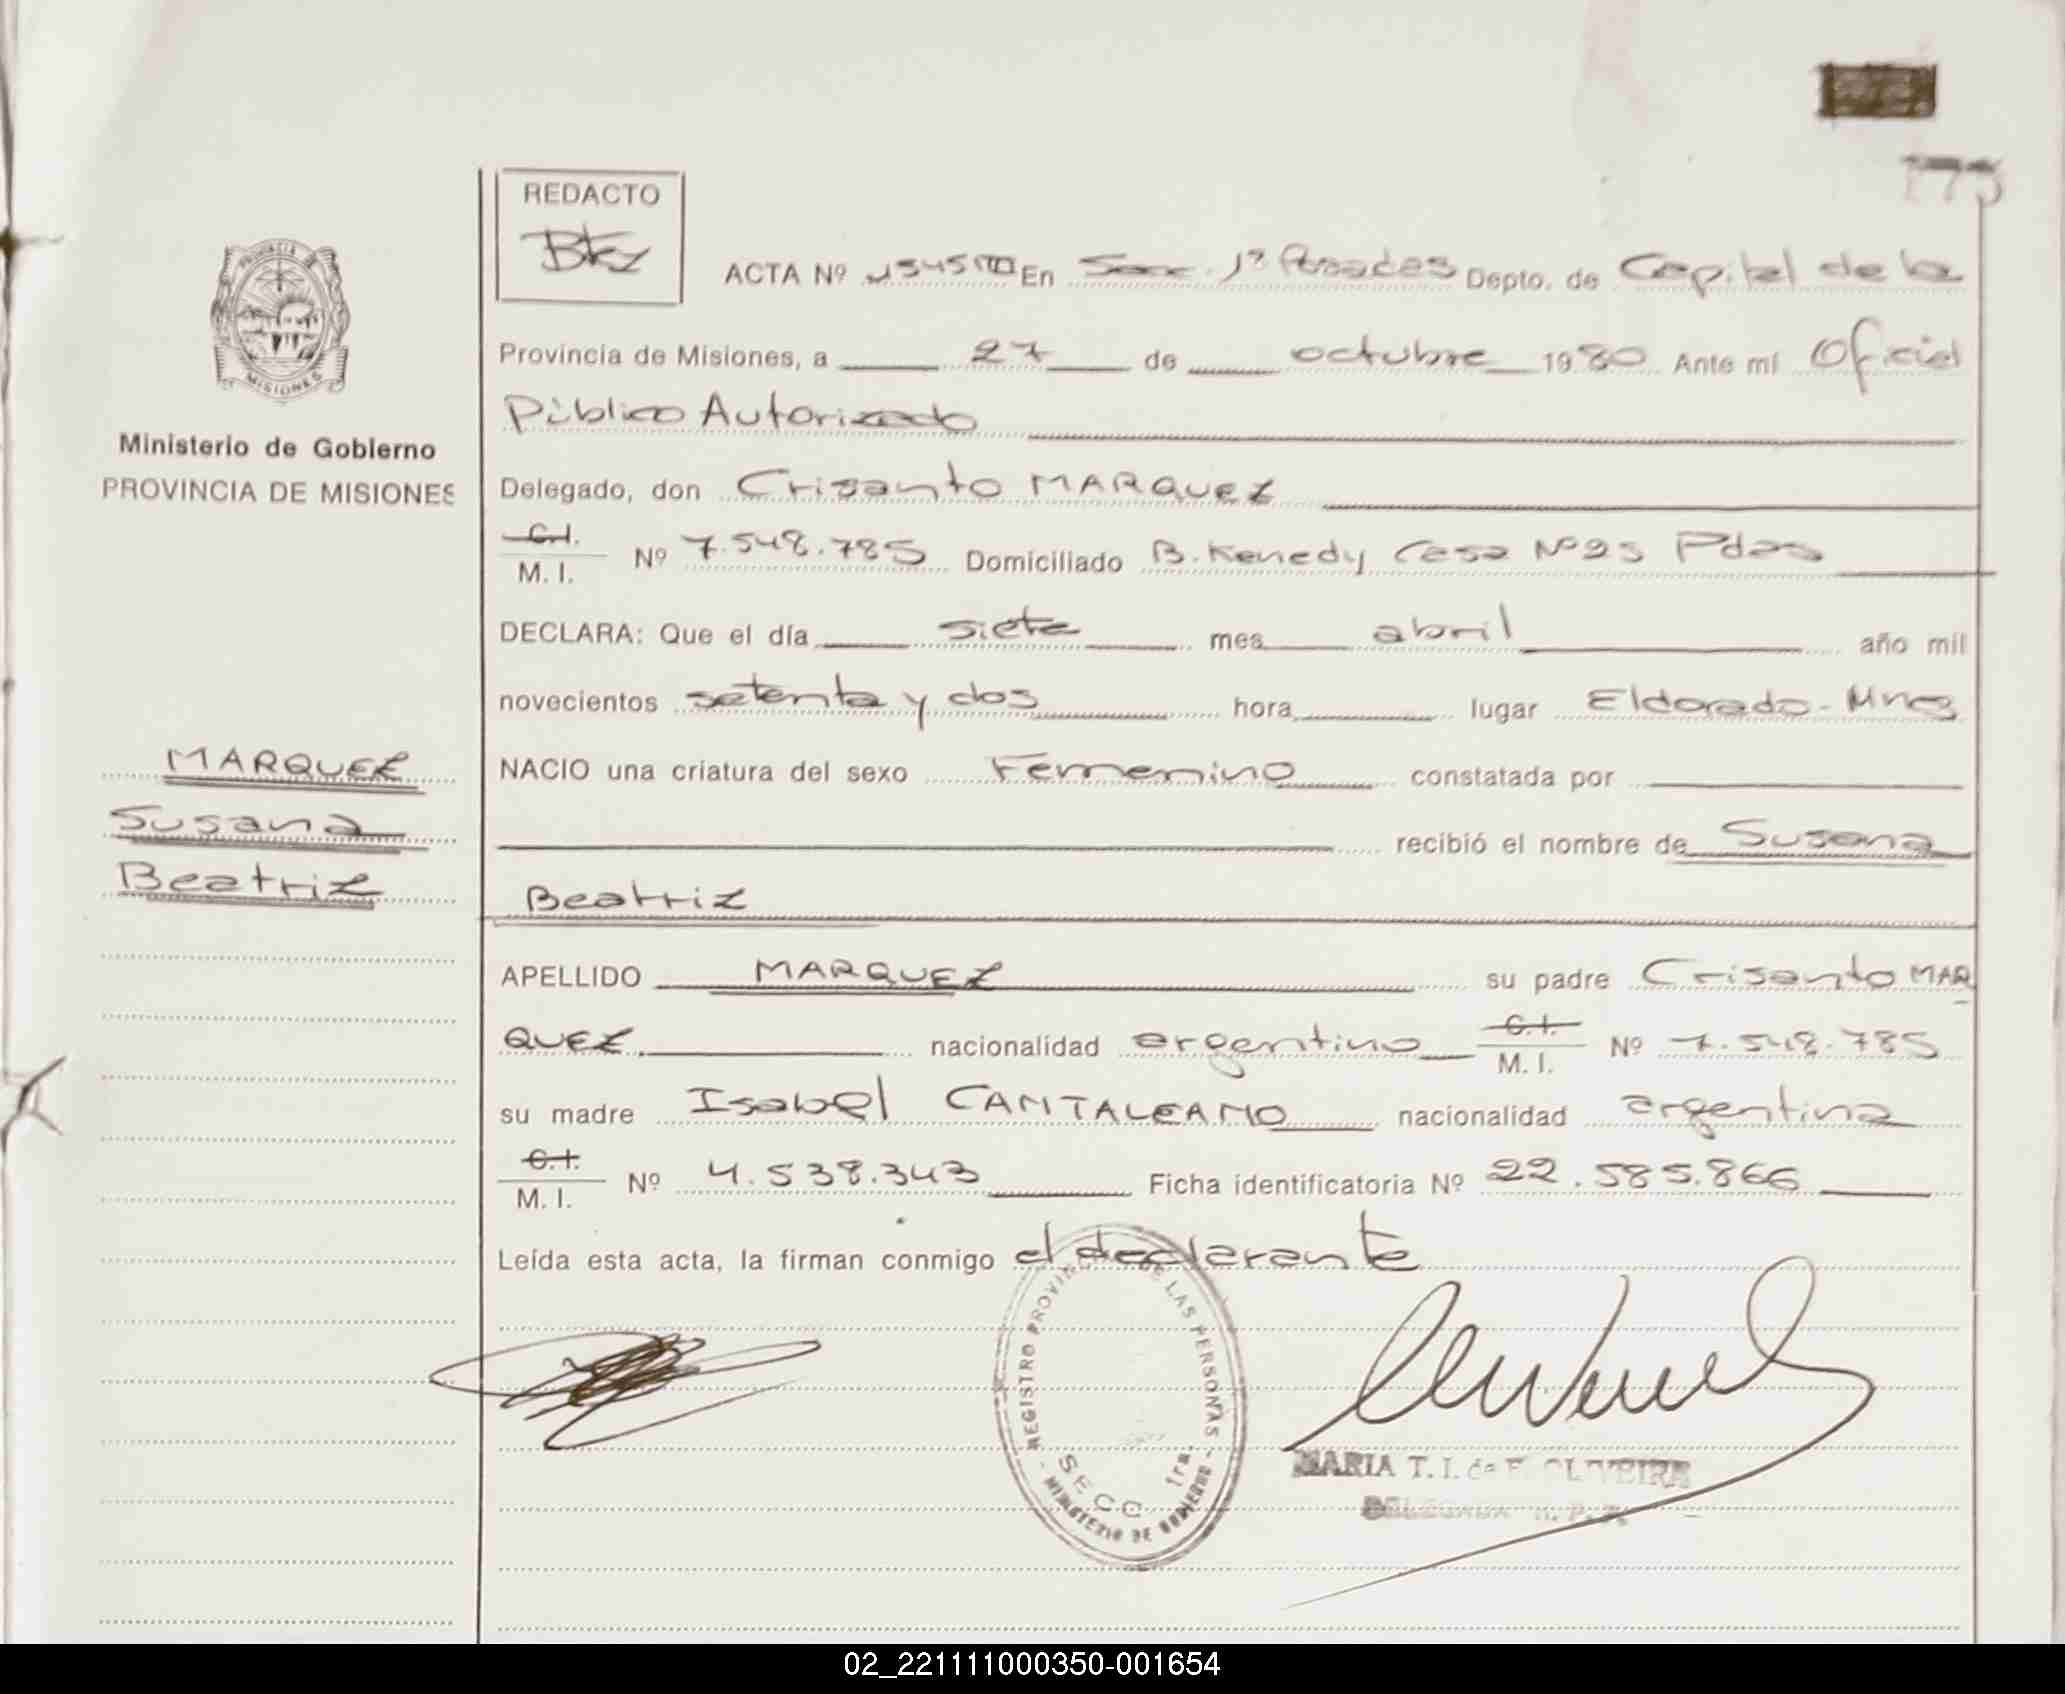 775
REDACTO
ACTA Nº 1545 En Secc. 1ª Posadas Depto. de Capital de la
Provincia de Misiones, a 27 de octubre 1980 Ante mí Oficial
Público Autorizado
Ministerio de Gobierno
PROVINCIA DE MISIONES
Delegado, don Crisanto MARQUEZ
C.I.
M. I. Nº 7.548.785 Domiciliado B. Kenedy Casa Nº 25 Pdas
DECLARA: Que el día siete mes abril año mil
novecientos setenta y dos hora lugar Eldorado - Mnes
MARQUEZ
NACIO una criatura del sexo Femenino constatada por
Susana
recibió el nombre de Susana
Beatriz
Beatriz
APELLIDO MARQUEZ su padre Crisanto MAR
QUEZ nacionalidad argentino C.I. M. I. Nº 7.548.785
su madre Isabel CANTALEANO nacionalidad argentina
C.I.
M. I. Nº 4.538.343 Ficha identificatoria Nº 22.585.866
Leída esta acta, la firman conmigo el declarante
REGISTRO PROVINCIAL DE LAS PERSONAS
SECC. 1ra.
MINISTERIO DE GOBIERNO
MARIA T. I. de OLIVEIRA
DELEGADA R. P. P.
02_221111000350-001654